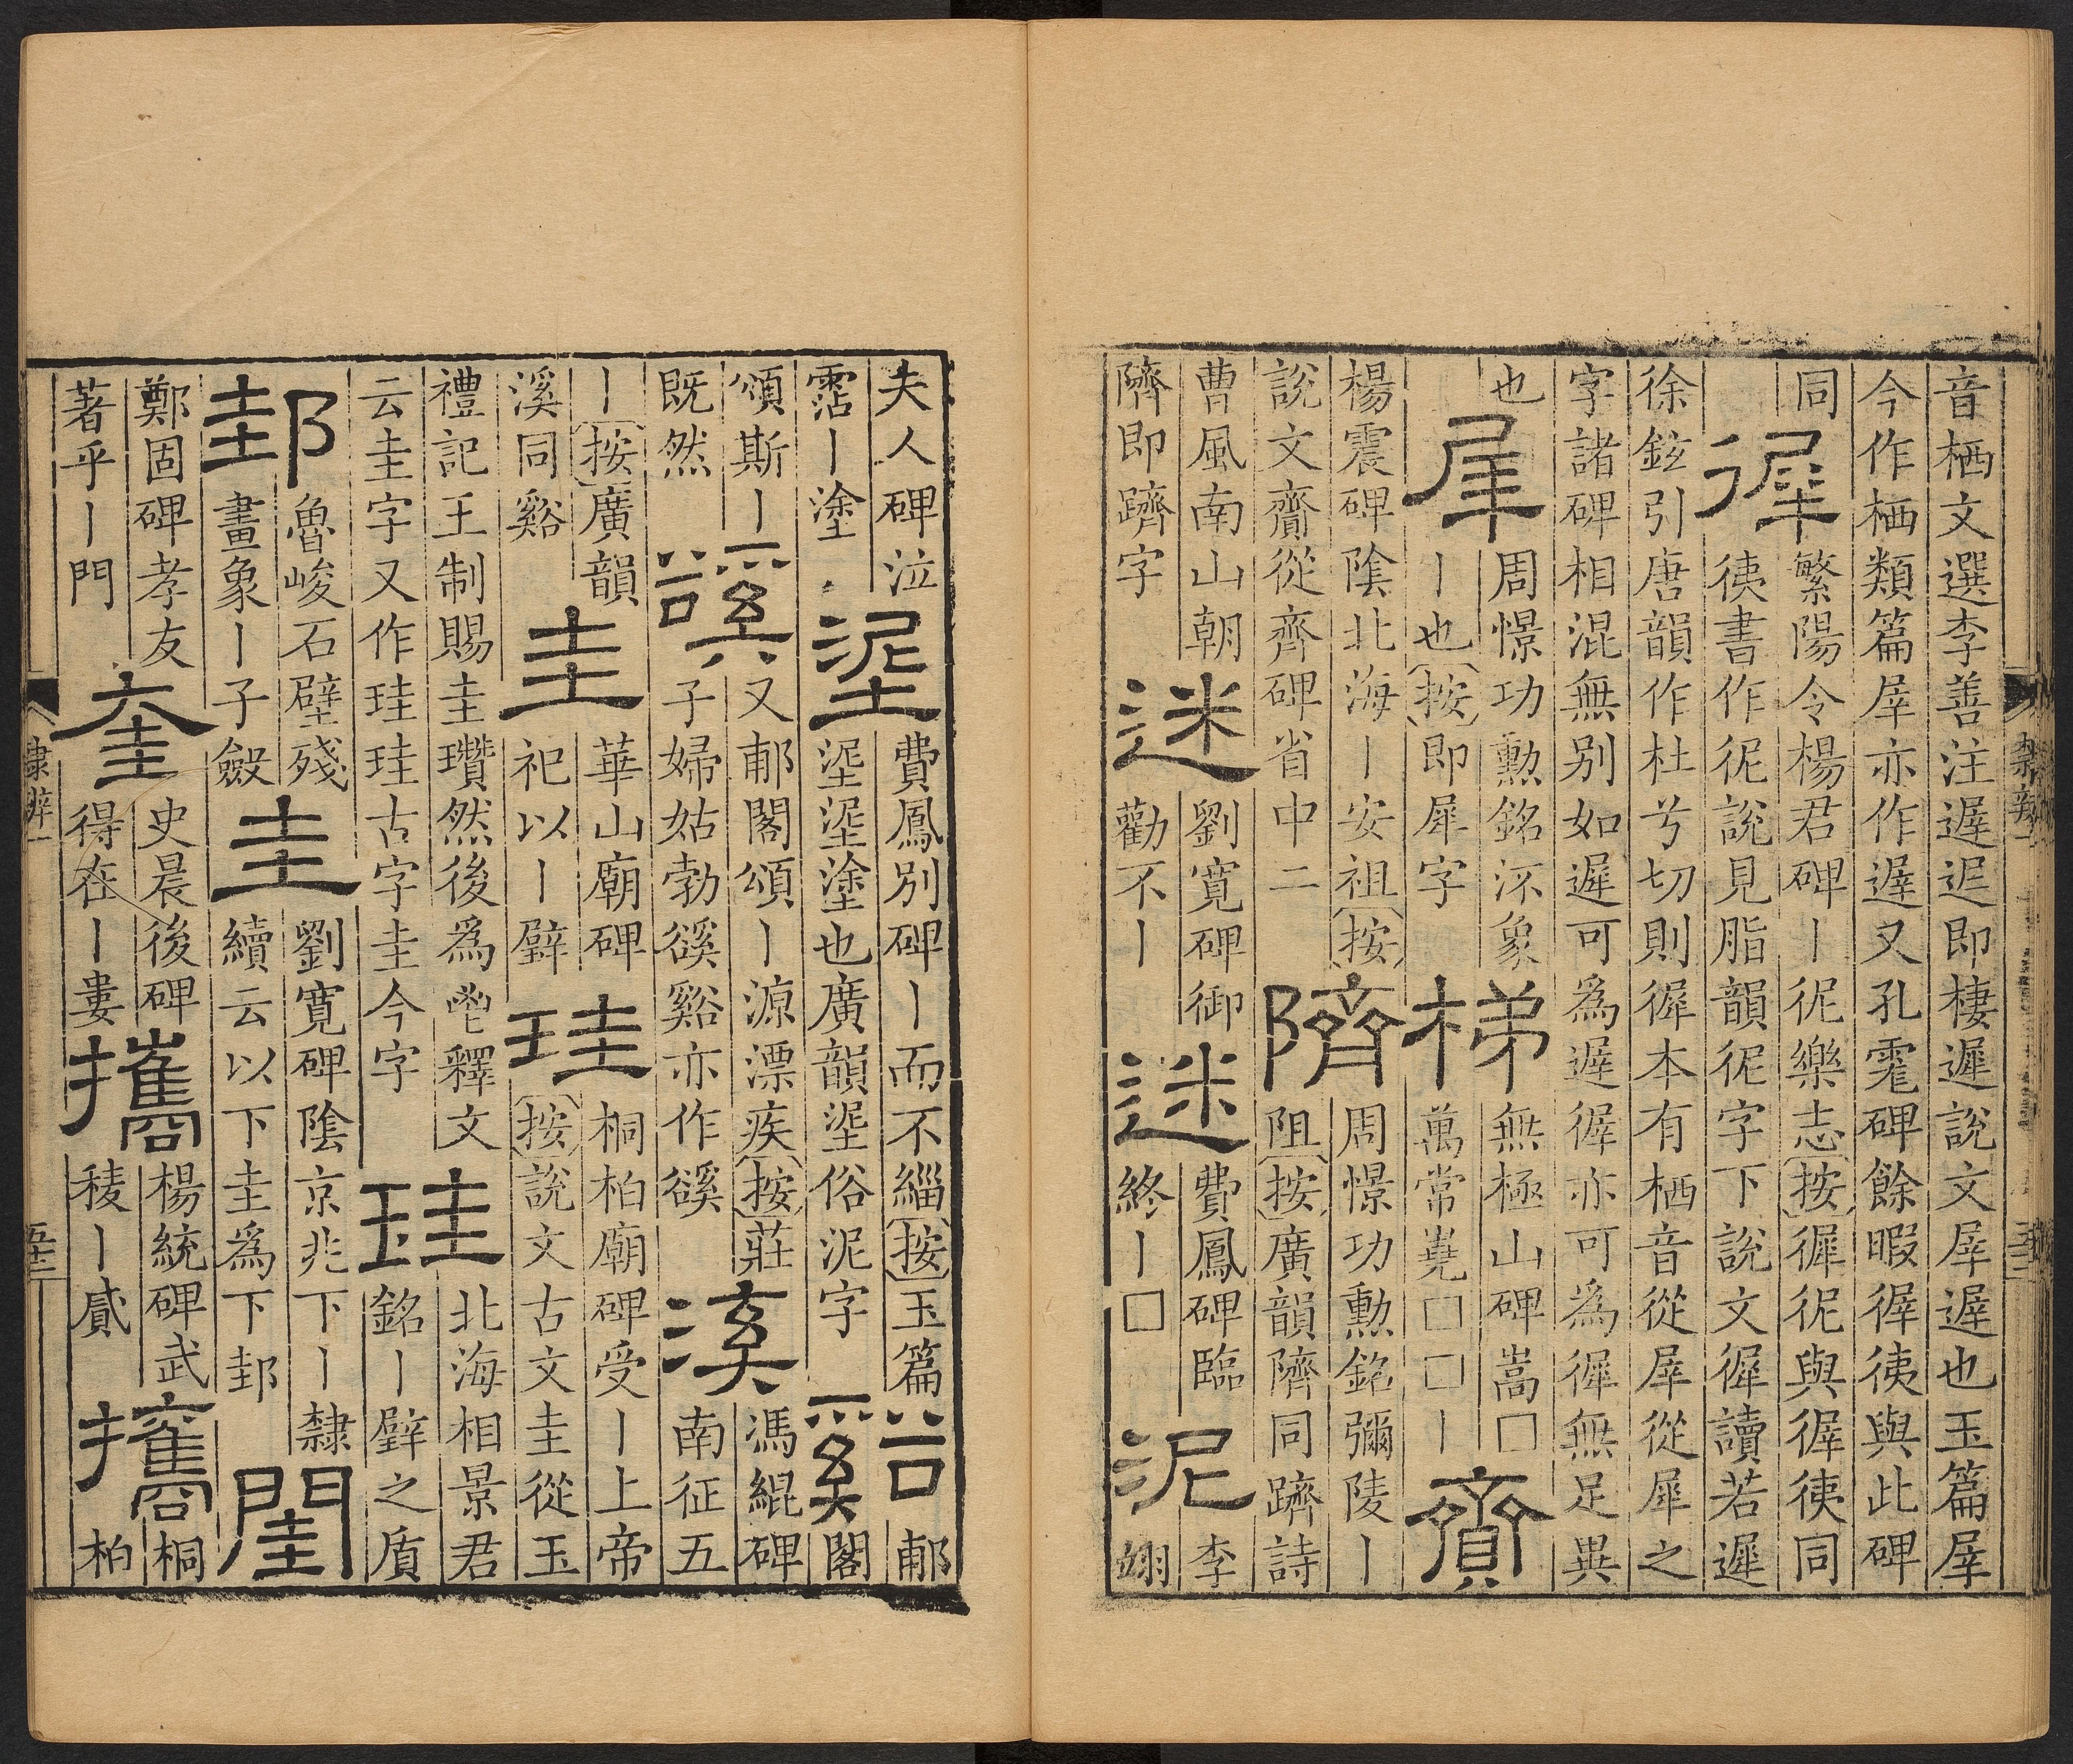 音栖文選李善注遟迟即棲遲說文屖遟也玉篇屖
今作栖類篇屖亦作遟又孔霐碑餘暇徲𢓡與此碑
同
徲
繁陽令楊君碑丨彽樂志按徲彽與徲𢓡同
𢓡書作彽說見脂韻彽字下說文徲讀若遲
徐鉉引唐韻作杜兮切則徲本有栖音從屖從犀之
字諸碑相混無别如遲可為遟徲亦可為徲無足異
也
屖
周憬功勲銘沶象
丨也按即犀字
梯
無極山碑嵩□
萬常嶤□□丨
齎
楊震碑陰北海丨安祖按
說文齎從齊碑省中二
隮
周憬功勲銘彌陵丨
阻按廣韻隮同躋詩
曹風南山朝
隮即躋字
迷
劉寬碑御
勸不丨
迷
費鳳碑臨
終丨□
泥
李
翊
夫人碑泣
霑丨塗
埿
費鳳別碑丨而不緇按玉篇
埿埿塗也廣韻埿俗泥字
谿
郙
閣
頌斯丨
既然
谿
又郙閣頌丨源漂疾按莊
子婦姑勃豀谿亦作豀
溪
馮緄碑
南征五
丨按廣韻
溪同谿
圭
華山廟碑
祀以丨璧
珪
桐柏廟碑受丨上帝
按說文古文圭從玉
禮記王制賜圭瓚然後為鬯釋文
云圭字又作珪珪古字圭今字
珪
北海相景君
銘丨璧之質
邽
魯峻石壁殘
畫象丨子斂
圭
劉寬碑陰京兆下丨隸
續云以下圭為下邽
閨
鄭固碑孝友
著乎丨門
奎
史晨後碑
得在丨婁
攜
楊統碑武
稜丨貳
攜
桐
柏
隸辨一
五十二